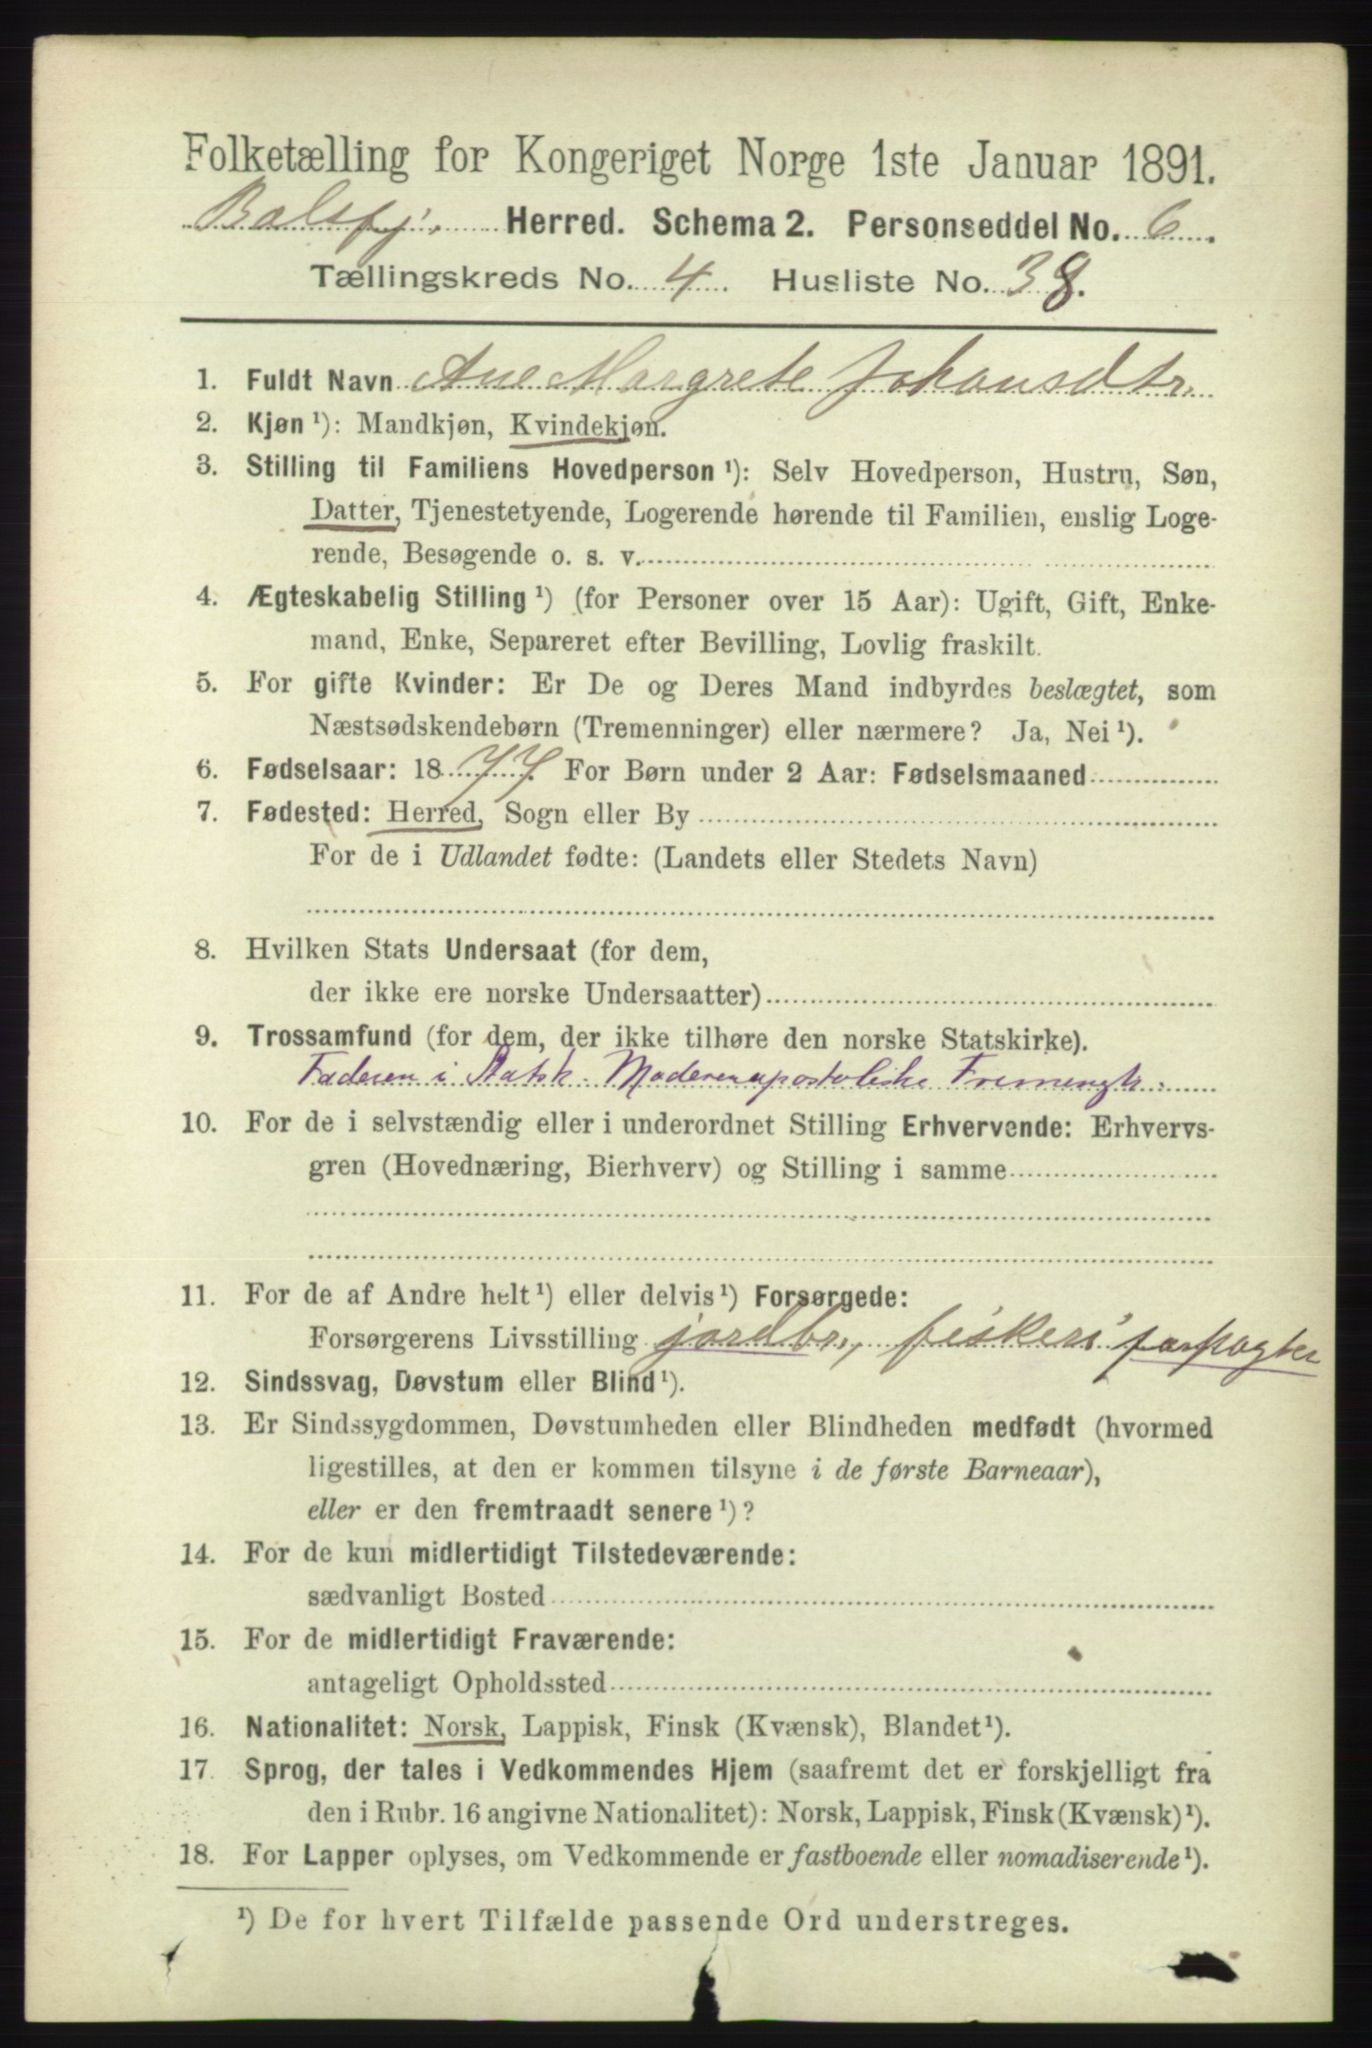 Folketælling for Kongeriget Norge 1ste Januar 1891.
Balsfj. Herred. Schema 2. Personseddel No. 6.
Tællingskreds No. 4. Husliste No. 38.
1. Fuldt Navn Ane Margrete Johansdtr.
2. Kjøn ¹): Mandkjøn, Kvindekjøn.
3. Stilling til Familiens Hovedperson ¹): Selv Hovedperson, Hustru, Søn,
Datter, Tjenestetyende, Logerende hørende til Familien, enslig Loge-
rende, Besøgende o. s. v.
4. Ægteskabelig Stilling ¹) (for Personer over 15 Aar): Ugift, Gift, Enke-
mand, Enke, Separeret efter Bevilling, Lovlig fraskilt.
5. For gifte Kvinder: Er De og Deres Mand indbyrdes beslægtet, som
Næstsødskendebørn (Tremenninger) eller nærmere? Ja, Nei ¹).
6. Fødselsaar: 1877. For Børn under 2 Aar: Fødselsmaaned
7. Fødested: Herred, Sogn eller By
For de i Udlandet fødte: (Landets eller Stedets Navn)
8. Hvilken Stats Undersaat (for dem,
der ikke ere norske Undersaatter)
9. Trossamfund (for dem, der ikke tilhøre den norske Statskirke).
Faderen i Statsk. Moderen apostoliske Frimengh.
10. For de i selvstændig eller i underordnet Stilling Erhvervende: Erhvervs-
gren (Hovednæring, Bierhverv) og Stilling i samme
11. For de af Andre helt ¹) eller delvis ¹) Forsørgede:
Forsørgerens Livsstilling jordbr., fiskeri forpagter
12. Sindssvag, Døvstum eller Blind ¹).
13. Er Sindssygdommen, Døvstumheden eller Blindheden medfødt (hvormed
ligestilles, at den er kommen tilsyne i de første Barneaar),
eller er den fremtraadt senere ¹)?
14. For de kun midlertidigt Tilstedeværende:
sædvanligt Bosted
15. For de midlertidigt Fraværende:
antageligt Opholdssted
16. Nationalitet: Norsk, Lappisk, Finsk (Kvænsk), Blandet ¹).
17. Sprog, der tales i Vedkommendes Hjem (saafremt det er forskjelligt fra
den i Rubr. 16 angivne Nationalitet): Norsk, Lappisk, Finsk (Kvænsk) ¹).
18. For Lapper oplyses, om Vedkommende er fastboende eller nomadiserende ¹).
¹) De for hvert Tilfælde passende Ord understreges.